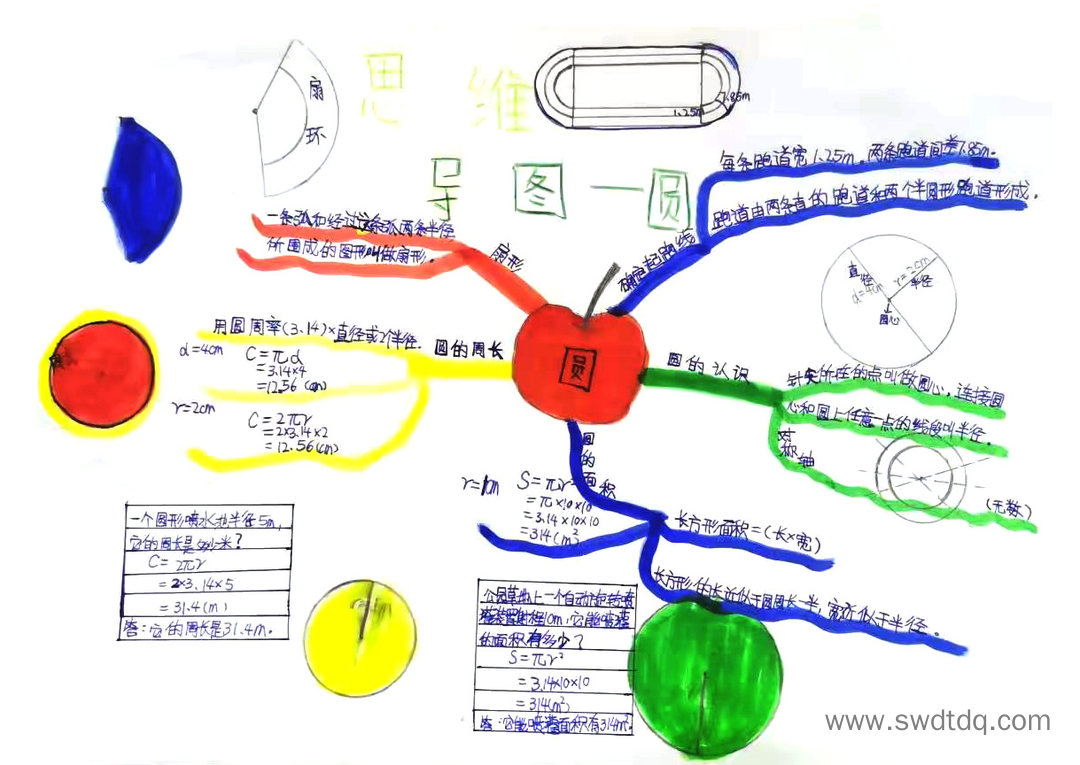 思 维
导 图 一 圆
扇
环
1.25m
7.85m
每条跑道宽1.25m,两条跑道间差7.85m.
跑道由两条直的跑道和两个半圆形跑道形成.
确定起跑线
一条弧和经过这条弧两条半径
所围成的图形叫做扇形.
扇形
直径
d=4cm
r=2cm
半径
圆心
用圆周率(3.14)×直径或2个半径.
圆的周长
d=4cm
C=πd
=3.14×4
=12.56(cm)
r=2cm
C=2πr
=2×3.14×2
=12.56(cm)
圆
圆的认识
针尖所在的点叫做圆心,连接圆
心和圆上任意一点的线段叫半径.
对称轴
(无数)
圆的面积
S=πr²
=π×10×10
=3.14×10×10
=314(m²)
长方形面积=(长×宽)
长方形的长近似于圆周长一半,宽近似于半径.
一个圆形喷水池半径5m,
它的周长是多少米?
C=2πr
=2×3.14×5
=31.4(m)
答:它的周长是31.4m.
公园草地上一个自动旋转喷
灌装置射程10m,它能喷灌
的面积有多少?
S=πr²
=3.14×10×10
=314(m²)
答:它能喷灌面积有314m².
www.swdtdq.com